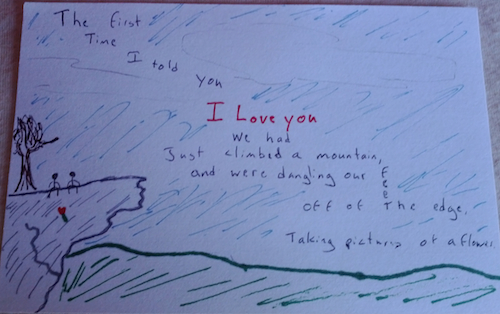 The first
Time
I told
you
I Love you
We had
Just climbed a mountain,
and were dangling our feet
off of the edge.
Taking pictures of a flower